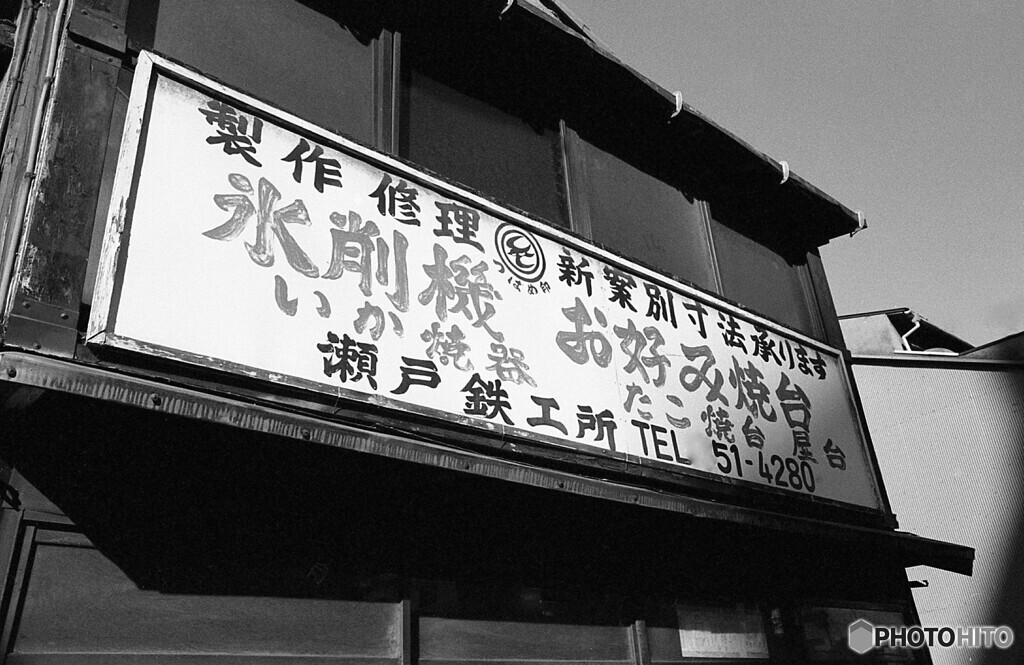 製作修理
つばめ印
新案別寸法承ります
氷削機
お好み焼台
いか焼器
たこ焼台屋台
瀬戸鉄工所
TEL 51-4280
PHOTOHITO